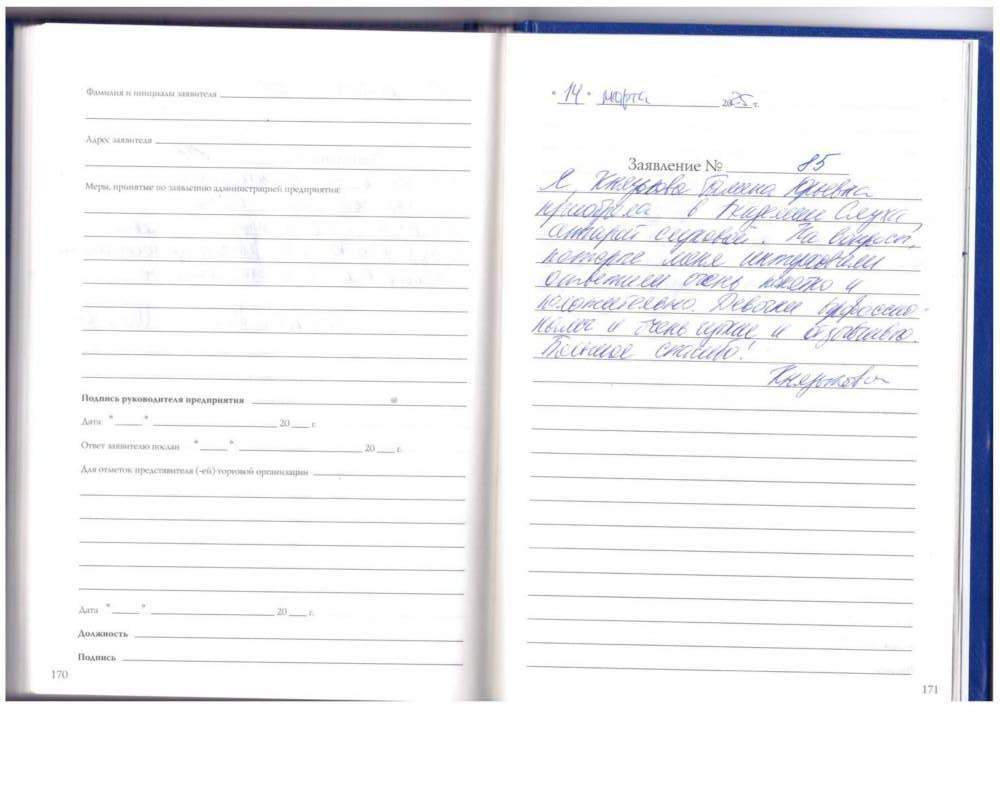 Фамилия и инициалы заявителя
Адрес заявителя
Меры, принятые по заявлению администрацией предприятия:
Подпись руководителя предприятия
Дата " " 20 г.
Ответ заявителю послан " " 20 г.
Для отметок представителя (-ей) торговой организации
Дата " " 20 г.
Должность
Подпись
170
"14" марта 2025 г.
Заявление № 85
Я, Князькова Юрьевна
приобрела в Академии Слуха,
аппарат слуховой. На вопросы,
которые меня интересовали
ответили очень понятно и
положительно. Девочки профессио-
и очень
Большое спасибо!
Князькова
171